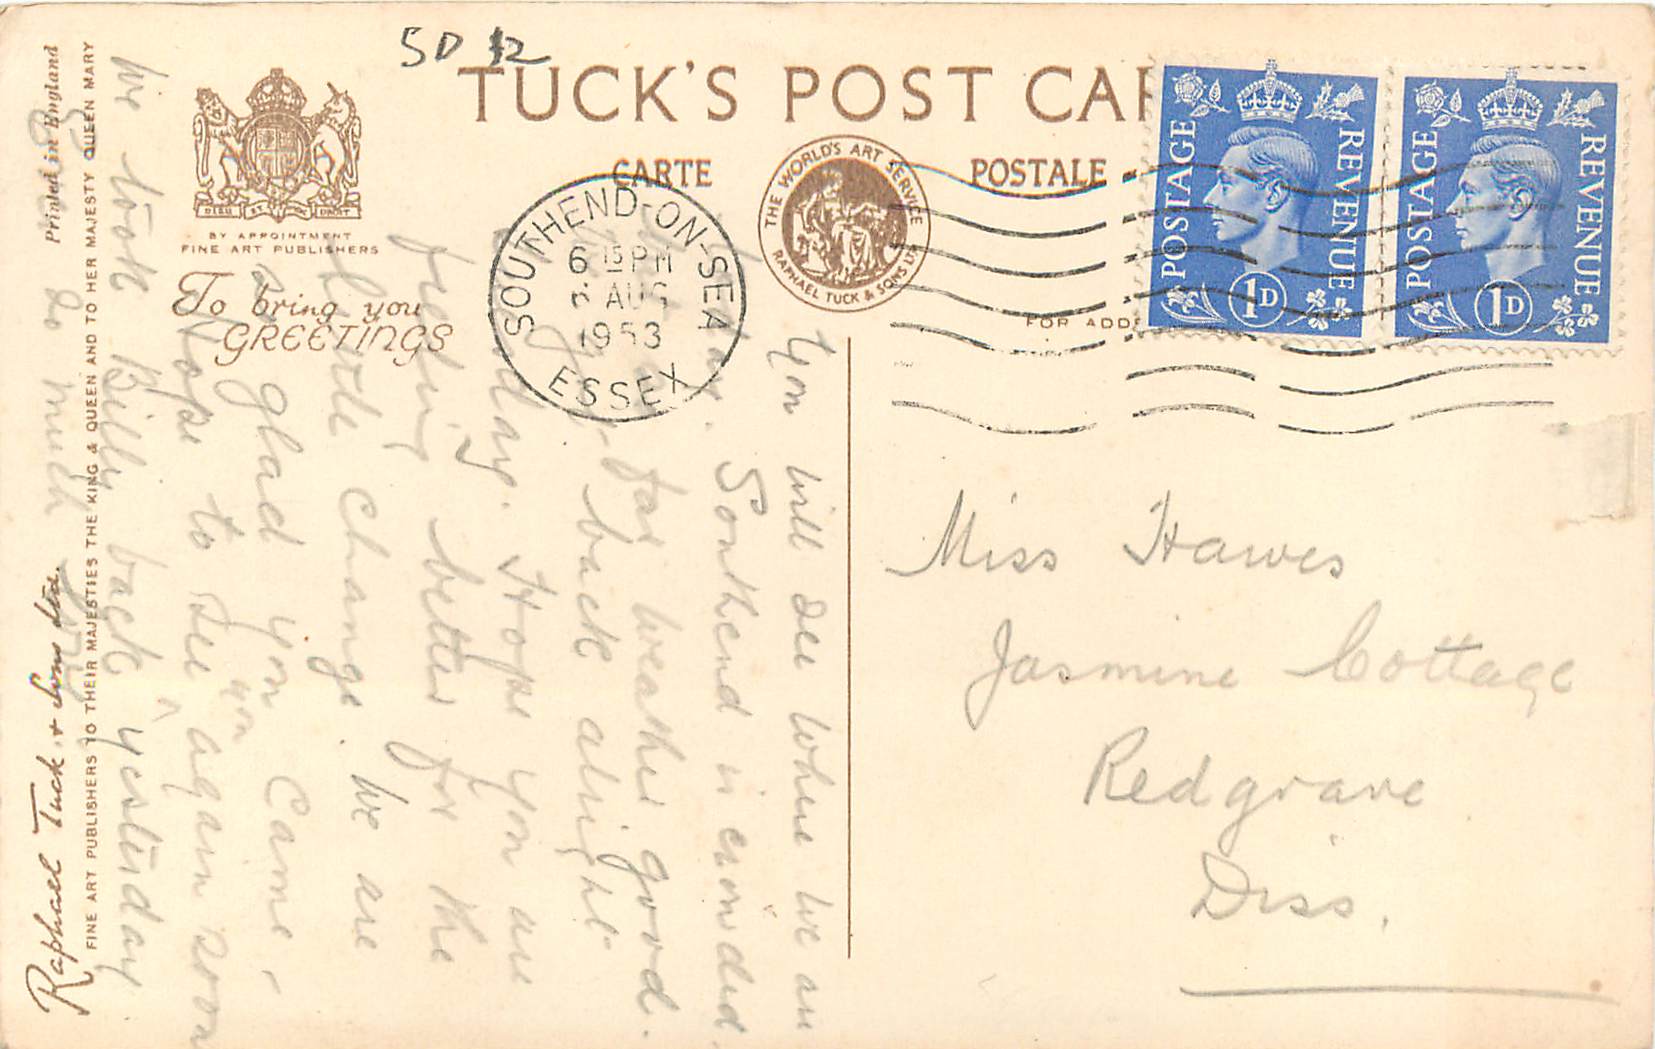 5D
TUCK'S POST CAR
CARTE POSTALE
BY APPOINTMENT
FINE ART PUBLISHERS
To bring you
GREETINGS
THE WORLD'S ART SERVICE
RAPHAEL TUCK & SONS LTD
SOUTHEND-ON-SEA
6 15 PM
6 AUG
1953
ESSEX
POSTAGE REVENUE
1D
POSTAGE REVENUE
1D
FOR ADD
Miss Hawes
Jasmine Cottage
Redgrave
Diss.
You will see where we are
Southend is crowded.
far weather good.
back alright
Hope you are
feeling better for the
little change. We are
so glad you came,
Hope to see you again soon
We took Billy back yesterday
so much
Printed in England
Raphael Tuck & Sons Ltd.
FINE ART PUBLISHERS TO THEIR MAJESTIES THE KING & QUEEN AND TO HER MAJESTY QUEEN MARY